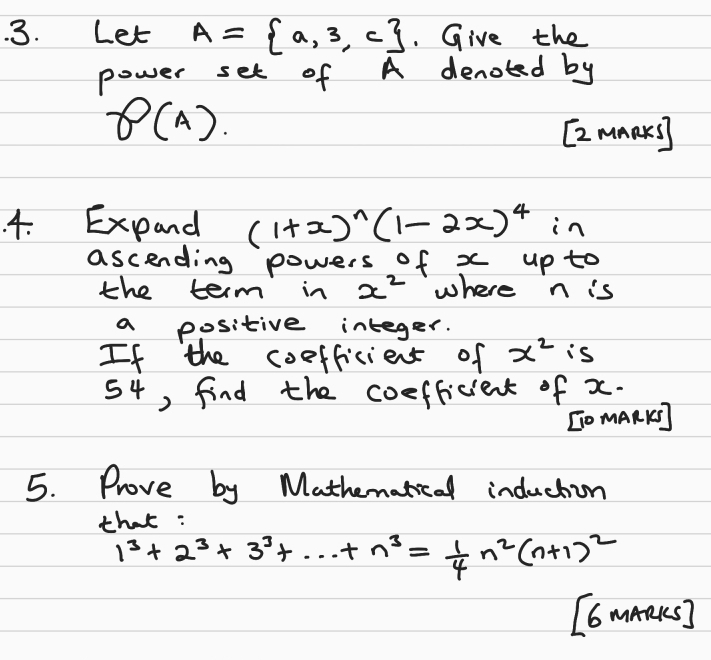 .3. Let A = {a, 3, c}. Give the
power set of A denoted by
℘(A).
[2 MARKS]
.4. Expand (1+x)ⁿ(1− 2x)⁴ in
ascending powers of x up to
the term in x² where n is
a positive integer.
If the coefficient of x² is
54, find the coefficient of x.
[10 MARKS]
5. Prove by Mathematical induction
that :
1³+ 2³+ 3³+ ...+ n³= 1/4 n²(n+1)²
[6 MARKS]